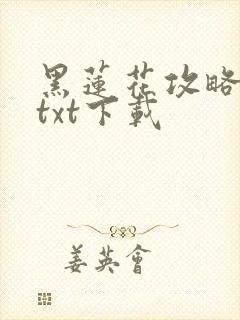 黑蓮花攻略
txt下載
姜英會